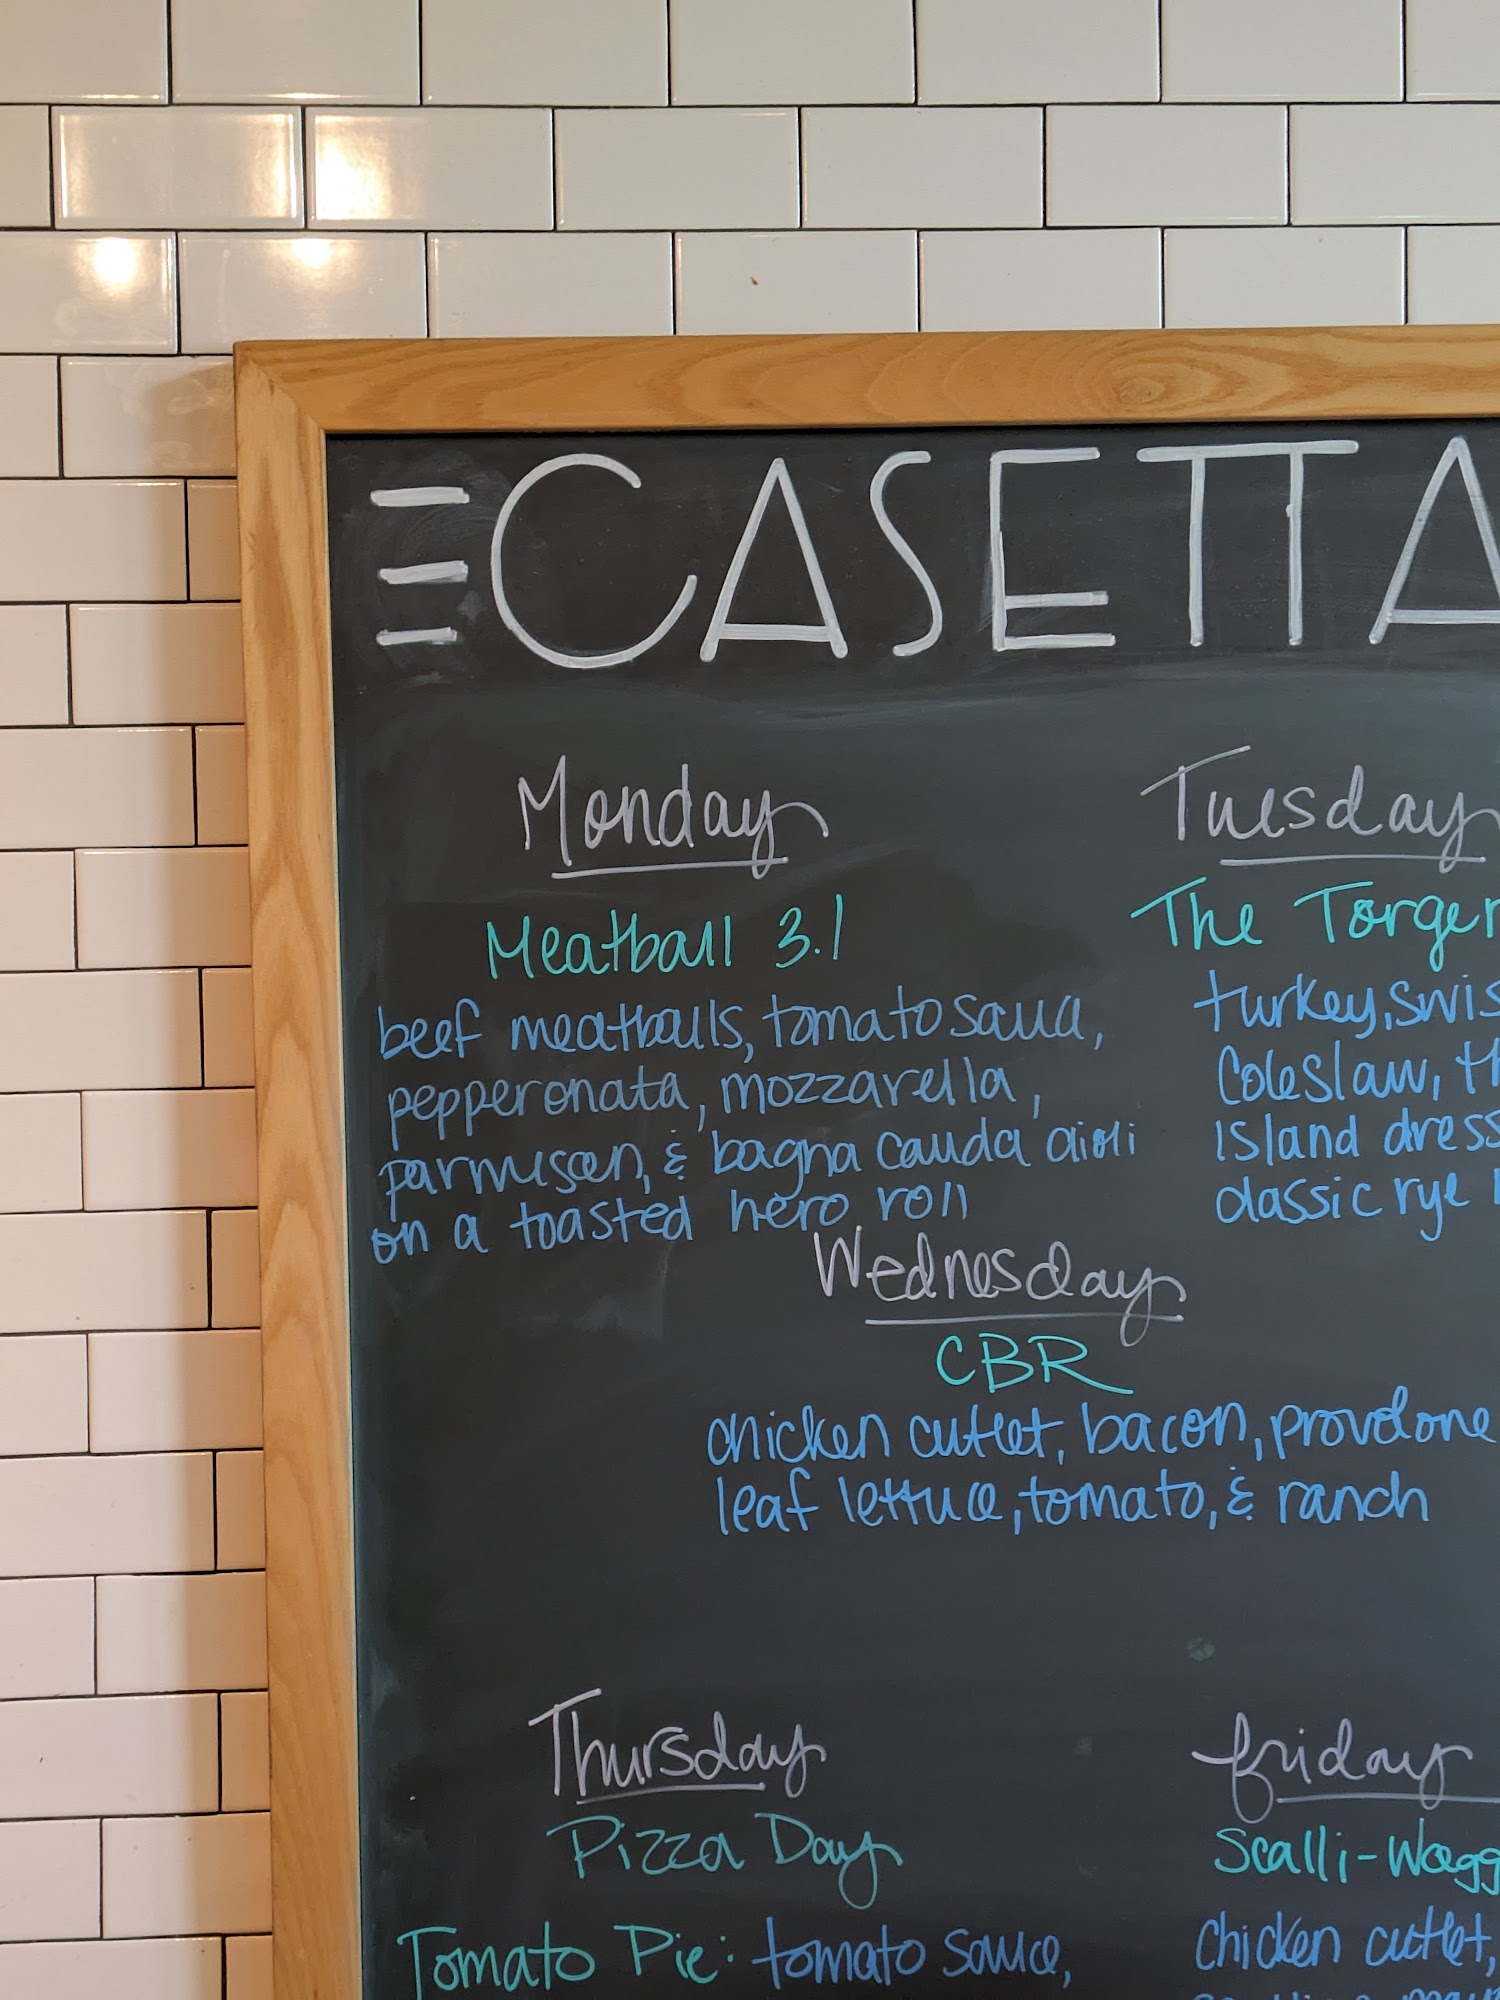 CASETTA
Monday
Meatball 3.1
beef meatballs, tomato sauce,
pepperonata, mozzarella,
parmesan, & bagna cauda aioli
on a toasted hero roll
Tuesday
The Torger
turkey, swis
coleslaw, th
island dress
classic rye
Wednesday
CBR
chicken cutlet, bacon, provolone
leaf lettuce, tomato, & ranch
Thursday
Pizza Day
Tomato Pie: tomato sauce,
friday
Scalli-Wagg
chicken cutlet,